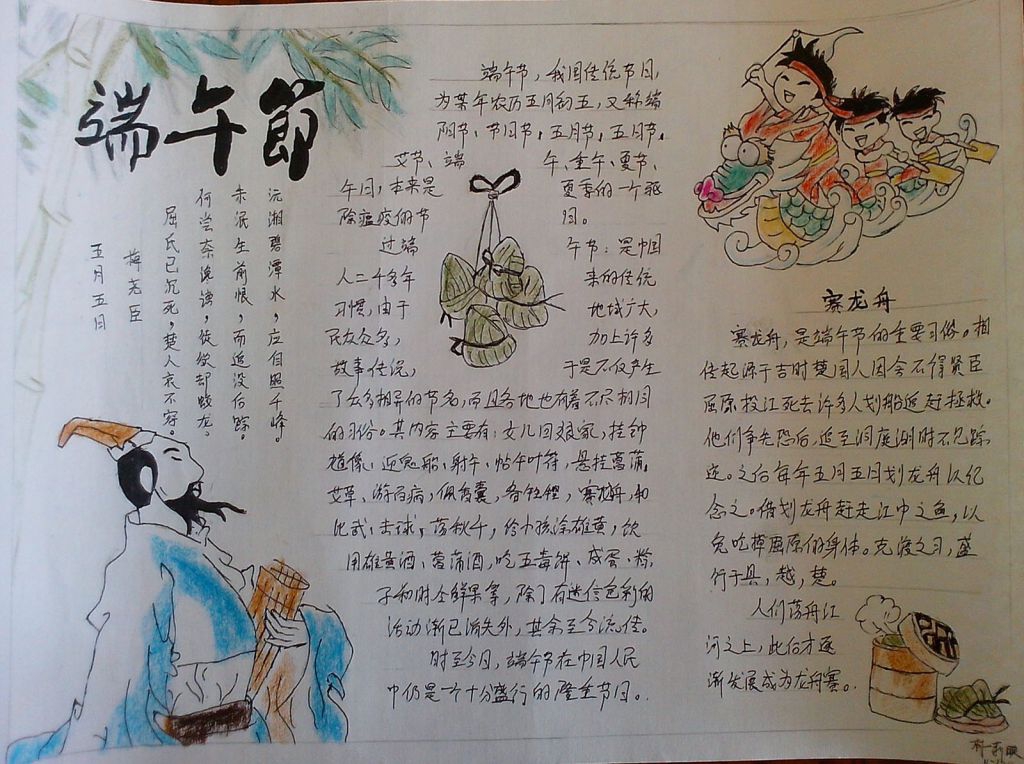 端午節
五月五日
梅尧臣
屈氏已沉死，楚人哀不容。
何尝奈谗谤，徒欲却蛟龙。
未泯生前恨，而追没后踪。
沅湘碧潭水，应自照千峰。
端午节，我国传统节日，
为某年农历五月初五，又称端
阳节、节日节，五月节，五月节，
艾节、端 午、重午、夏节、
午日，本来是 夏季的一个驱
除瘟疫的节 日。
过端 午节：是中国
人二千多年 来的传统
习惯，由于 地域广大，
民众众多， 加上许多
故事传说， 于是不仅产生
了众多相异的节名，而且各地也有着不尽相同
的习俗。其内容主要有：女儿回娘家，挂钟
馗像、迎鬼船、射午、帖午叶符，悬挂菖蒲，
艾草、游百病，佩香囊，备牲醴，赛龙舟，和
比武；击球；荡秋千，给小孩涂雄黄，饮
用雄黄酒、菖蒲酒，吃五毒饼、咸蛋、粽
子和时令鲜果等，除了有迷信色彩的
活动渐已消失外，其余至今流传。
时至今日，端午节在中国人民
中仍是一个十分盛行的隆重节日。
赛龙舟
赛龙舟，是端午节的重要习俗。相
传起源于古时楚国人因舍不得贤臣
屈原投江死去许多人划船追赶拯救。
他们争先恐后，追至洞庭湖时不见踪
迹。之后每年五月五日划龙舟以纪
念之。借划龙舟赶走江中之鱼，以
免吃掉屈原的身体。竞渡之习，盛
行于吴，越，楚。
人们荡舟江
河之上，此后才逐
渐发展成为龙舟赛。